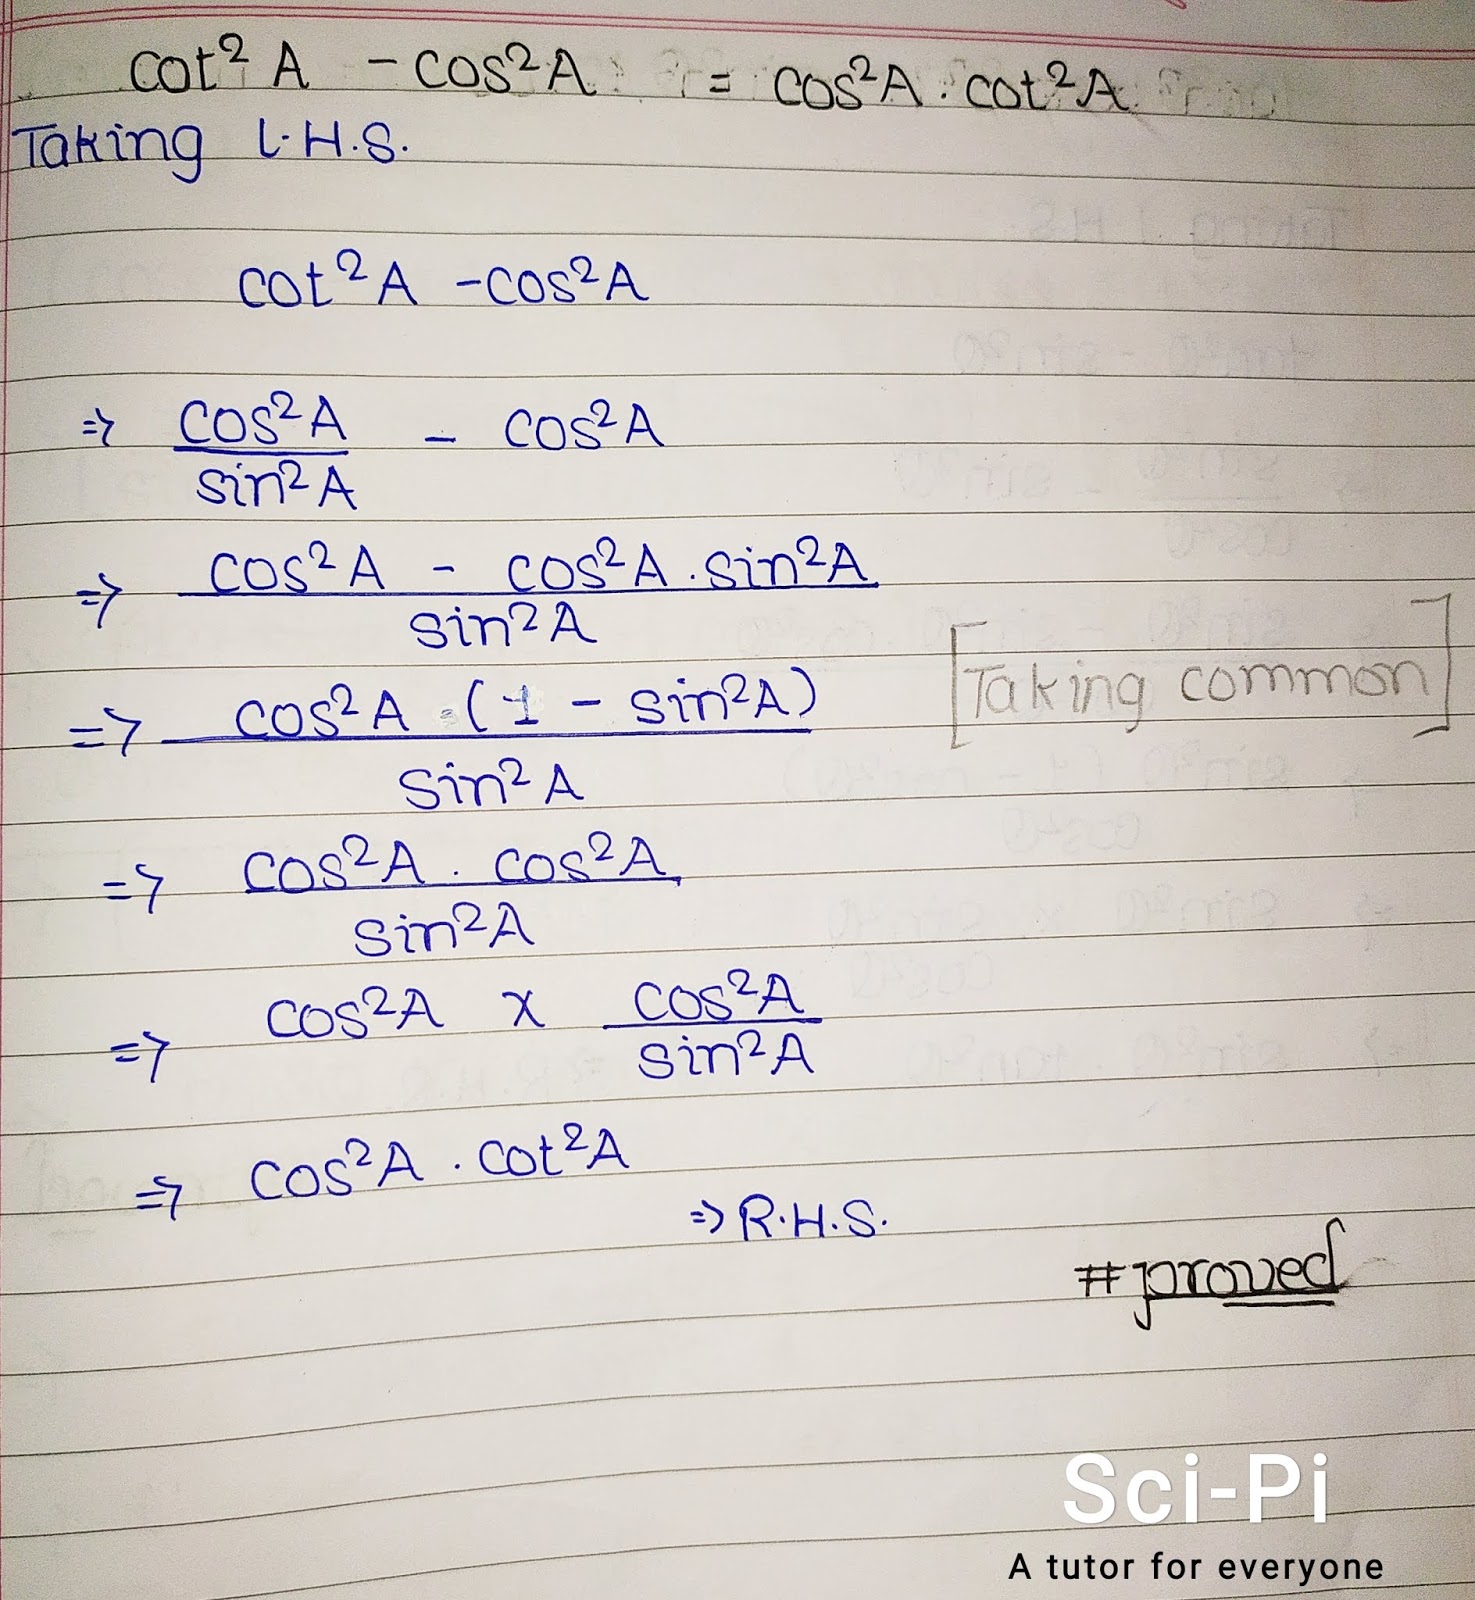 cot² A - cos²A = cos²A . cot²A
Taking L.H.S.
cot²A - cos²A
⇒ cos²A/sin²A - cos²A
⇒ cos²A - cos²A . sin²A / sin²A
⇒ cos²A . (1 - sin²A) / sin²A [Taking common]
⇒ cos²A . cos²A / sin²A
⇒ cos²A x cos²A/sin²A
⇒ cos²A . cot²A
⇒ R.H.S.
#proved
Sci-Pi
A tutor for everyone